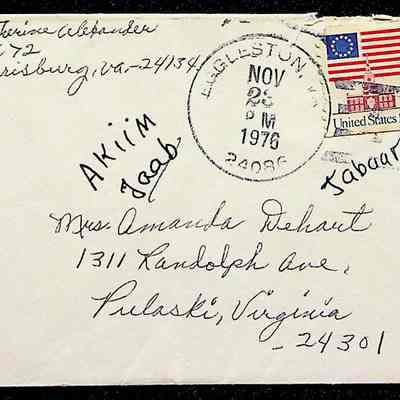 therine Alexander
72
risburg, Va.-24134
EGGLESTON, VA
NOV
23
PM
1976
24086
United States
AKiiM
Jaab
Jabaar
Mrs. Amanda Dehart
1311 Randolph Ave,
Pulaski, Virginia
- 24301